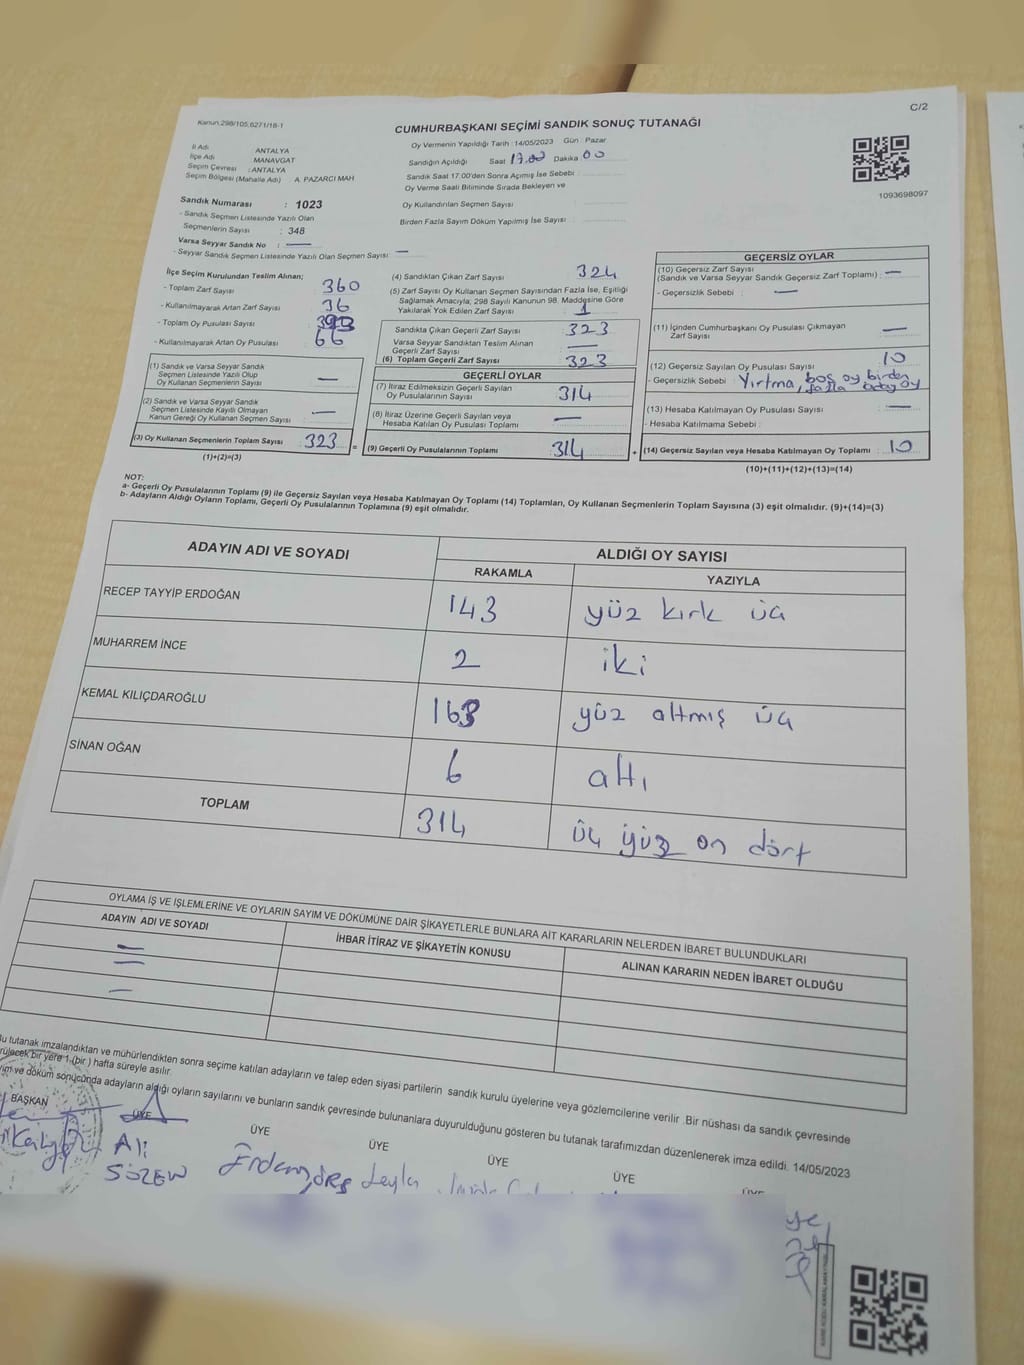 C/2
Kanun.298/105.6271/18-1
CUMHURBAŞKANI SEÇİMİ SANDIK SONUÇ TUTANAĞI
Oy Vermenin Yapıldığı Tarih : 14/05/2023 Gün : Pazar
Sandığın Açıldığı Saat 17.00 Dakika 00
Sandık Saat 17.00'den Sonra Açımış İse Sebebi :
Oy Verme Saati Bitiminde Sırada Bekleyen ve
Oy Kullandırılan Seçmen Sayısı :
Birden Fazla Sayım Döküm Yapılmış İse Sayısı :
1093698097
İl Adı : ANTALYA
İlçe Adı : MANAVGAT
Seçim Çevresi : ANTALYA
Seçim Bölgesi (Mahalle Adı) : A. PAZARCI MAH
Sandık Numarası : 1023
- Sandık Seçmen Listesinde Yazılı Olan
Seçmenlerin Sayısı : 348
Varsa Seyyar Sandık No : —
- Seyyar Sandık Seçmen Listesinde Yazılı Olan Seçmen Sayısı : —
İlçe Seçim Kurulundan Teslim Alınan;
- Toplam Zarf Sayısı : 360
- Kullanılmayarak Artan Zarf Sayısı : 36
- Toplam Oy Pusulası Sayısı :
- Kullanılmayarak Artan Oy Pusulası : 66
(1) Sandık ve Varsa Seyyar Sandık
Seçmen Listesinde Yazılı Olup
Oy Kullanan Seçmenlerin Sayısı : —
(2) Sandık ve Varsa Seyyar Sandık
Seçmen Listesinde Kayıtlı Olmayan
Kanun Gereği Oy Kullanan Seçmen Sayısı : —
(3) Oy Kullanan Seçmenlerin Toplam Sayısı : 323
(1)+(2)=(3)
(4) Sandıktan Çıkan Zarf Sayısı : 324
(5) Zarf Sayısı Oy Kullanan Seçmen Sayısından Fazla İse, Eşitliği
Sağlamak Amacıyla; 298 Sayılı Kanunun 98. Maddesine Göre
Yakılarak Yok Edilen Zarf Sayısı : 1
Sandıkta Çıkan Geçerli Zarf Sayısı : 323
Varsa Seyyar Sandıktan Teslim Alınan
Geçerli Zarf Sayısı : —
(6) Toplam Geçerli Zarf Sayısı : 323
GEÇERLİ OYLAR
(7) İtiraz Edilmeksizin Geçerli Sayılan
Oy Pusulalarının Sayısı : 314
(8) İtiraz Üzerine Geçerli Sayılan veya
Hesaba Katılan Oy Pusulası Toplamı : —
= (9) Geçerli Oy Pusulalarının Toplamı : 314
GEÇERSİZ OYLAR
(10) Geçersiz Zarf Sayısı
(Sandık ve Varsa Seyyar Sandık Geçersiz Zarf Toplamı) : —
- Geçersizlik Sebebi : —
(11) İçinden Cumhurbaşkanı Oy Pusulası Çıkmayan
Zarf Sayısı : —
(12) Geçersiz Sayılan Oy Pusulası Sayısı : 10
- Geçersizlik Sebebi : Yırtma, boş oy birden
fazla aday oy
(13) Hesaba Katılmayan Oy Pusulası Sayısı : —
- Hesaba Katılmama Sebebi :
+ (14) Geçersiz Sayılan veya Hesaba Katılmayan Oy Toplamı : 10
(10)+(11)+(12)+(13)=(14)
NOT:
a- Geçerli Oy Pusulalarının Toplamı (9) ile Geçersiz Sayılan veya Hesaba Katılmayan Oy Toplamı (14) Toplamları, Oy Kullanan Seçmenlerin Toplam Sayısına (3) eşit olmalıdır. (9)+(14)=(3)
b- Adayların Aldığı Oyların Toplamı, Geçerli Oy Pusulalarının Toplamına (9) eşit olmalıdır.
ADAYIN ADI VE SOYADI ALDIĞI OY SAYISI
RAKAMLA YAZIYLA
RECEP TAYYİP ERDOĞAN 143 yüz kırk üç
MUHARREM İNCE 2 iki
KEMAL KILIÇDAROĞLU 163 yüz altmış üç
SİNAN OĞAN 6 altı
TOPLAM 314 üç yüz on dört
OYLAMA İŞ VE İŞLEMLERİNE VE OYLARIN SAYIM VE DÖKÜMÜNE DAİR ŞİKAYETLERLE BUNLARA AİT KARARLARIN NELERDEN İBARET BULUNDUKLARI
ADAYIN ADI VE SOYADI İHBAR İTİRAZ VE ŞİKAYETİN KONUSU ALINAN KARARIN NEDEN İBARET OLDUĞU
Bu tutanak imzalandıktan ve mühürlendikten sonra seçime katılan adayların ve talep eden siyasi partilerin sandık kurulu üyelerine veya gözlemcilerine verilir. Bir nüshası da sandık çevresinde
bir yere 1 (bir) hafta süreyle asılır.
ve döküm sonucunda adayların aldığı oyların sayılarını ve bunların sandık çevresinde bulunanlara duyurulduğunu gösteren bu tutanak tarafımızdan düzenlenerek imza edildi. 14/05/2023
BAŞKAN ÜYE ÜYE ÜYE ÜYE ÜYE ÜYE
Ali
SÖZEN
Leyla